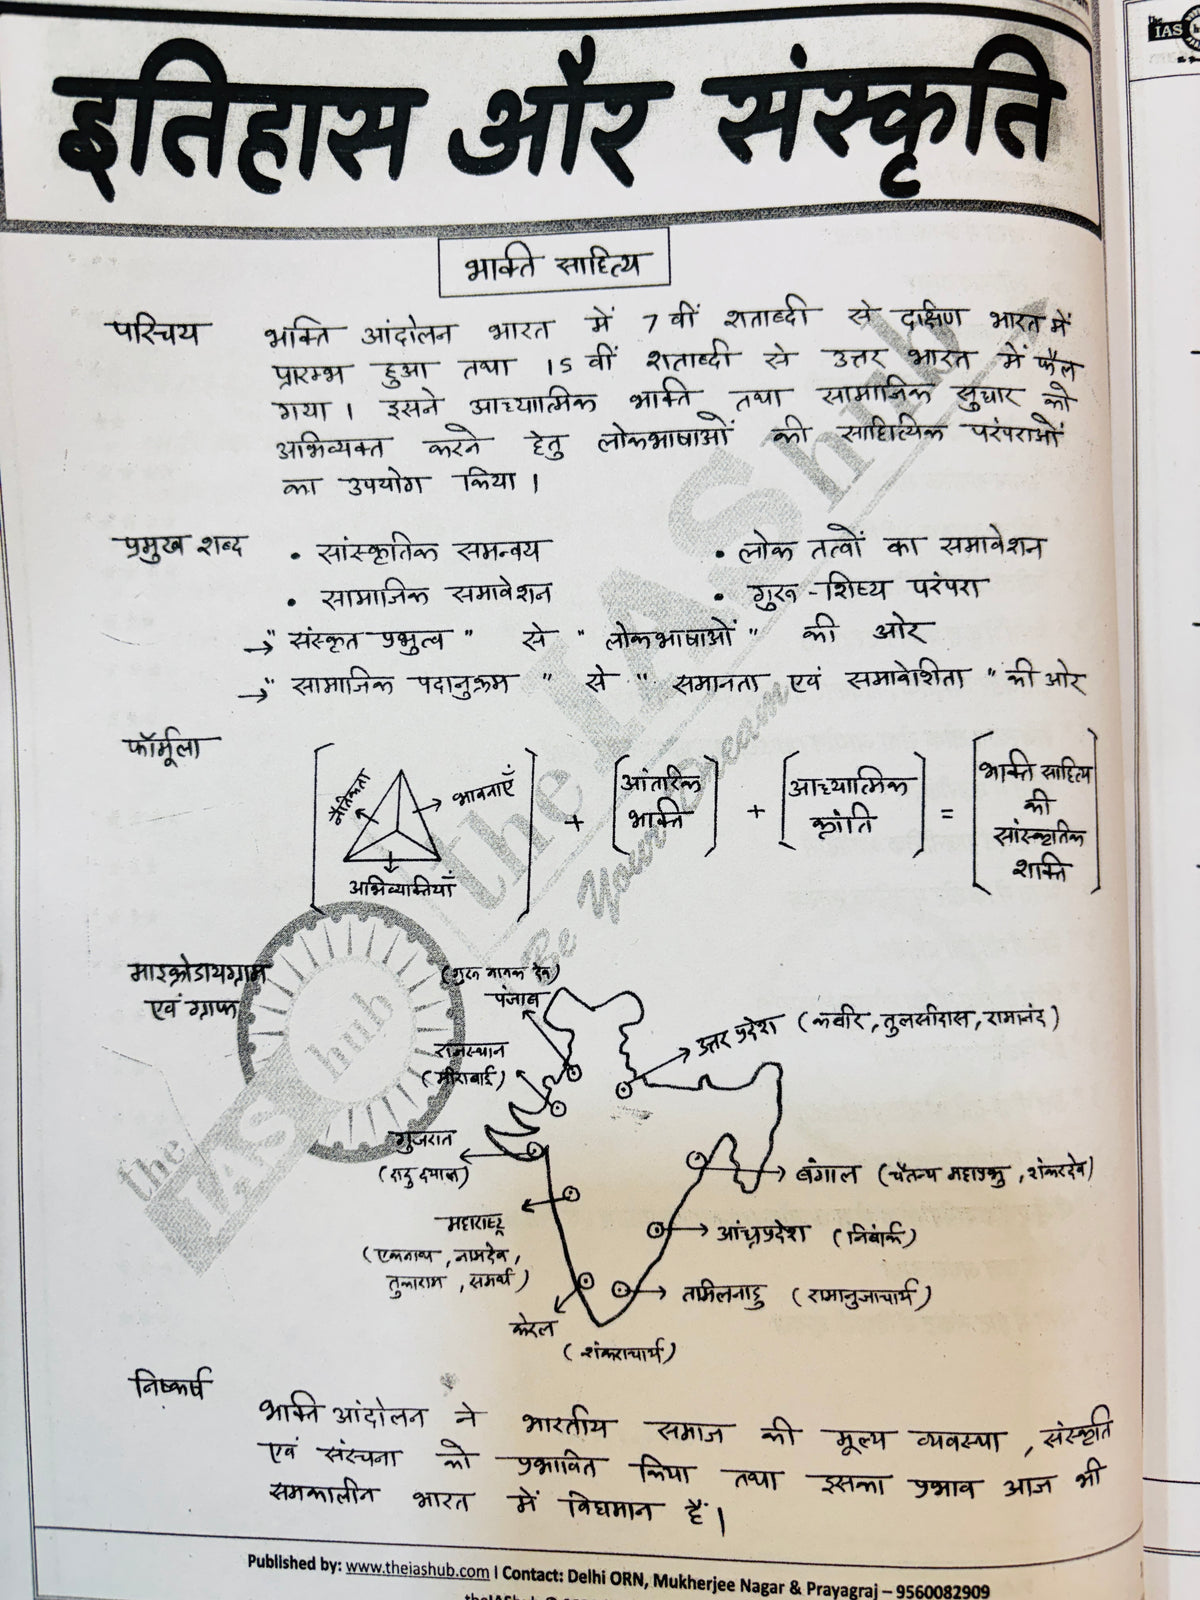 इतिहास और संस्कृति
भक्ति साहित्य
परिचय भक्ति आंदोलन भारत में 7वीं शताब्दी से दक्षिण भारत में
प्रारम्भ हुआ तथा 15 वीं शताब्दी से उत्तर भारत में फैल
गया। इसने आध्यात्मिक भक्ति तथा सामाजिक सुधार को
अभिव्यक्त करने हेतु लोकभाषाओं की साहित्यिक परंपराओं
का उपयोग किया।
प्रमुख शब्द • सांस्कृतिक समन्वय • लोक तत्वों का समावेशन
• सामाजिक समावेशन • गुरू-शिष्य परंपरा
→ "संस्कृत प्रभुत्व" से "लोकभाषाओं" की ओर
→ "सामाजिक पदानुक्रम" से "समानता एवं समावेशिता" की ओर
फॉर्मूला
नैतिकता
भावनाएँ
अभिव्यक्तियाँ
+
आंतरिक
भक्ति
+
आध्यात्मिक
क्रांति
=
भक्ति साहित्य
की
सांस्कृतिक
शक्ति
माइक्रोडायग्राम
एवं ग्राफ
(गुरू नानक देव)
पंजाब
उत्तर प्रदेश (कबीर, तुलसीदास, रामानंद)
राजस्थान
(मीराबाई)
गुजरात
(दादू दयाल)
बंगाल (चैतन्य महाप्रभु, शंकरदेव)
महाराष्ट्र
(एकनाथ, नामदेव,
तुकाराम, समर्थ)
आंध्रप्रदेश (निंबार्क)
तमिलनाडु (रामानुजाचार्य)
केरल
(शंकराचार्य)
निष्कर्ष
भक्ति आंदोलन ने भारतीय समाज की मूल्य व्यवस्था, संस्कृति
एवं संरचना को प्रभावित किया तथा इसका प्रभाव आज भी
समकालीन भारत में विद्यमान है।
the IAS hub
Be Your Dream
the IAS hub
Published by: www.theiashub.com I Contact: Delhi ORN, Mukherjee Nagar & Prayagraj – 9560082909
IAS